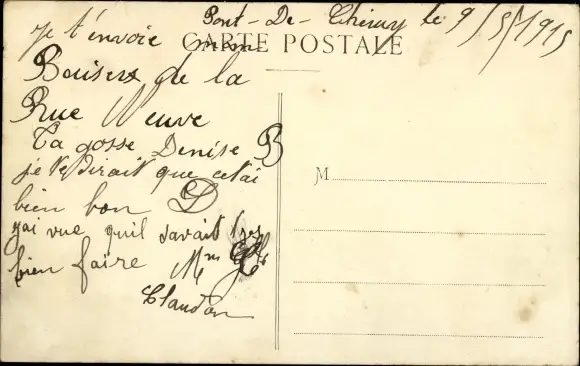 Pont-De-Cheruy le 9/5/1915
CARTE POSTALE
je t'envoie mon
Boisers de la
Rue Neuve
Ta gosse Denise B
je te dirait que cetai
bien bon D
jai vue quil savait tres
bien faire Mme
Claudon
M